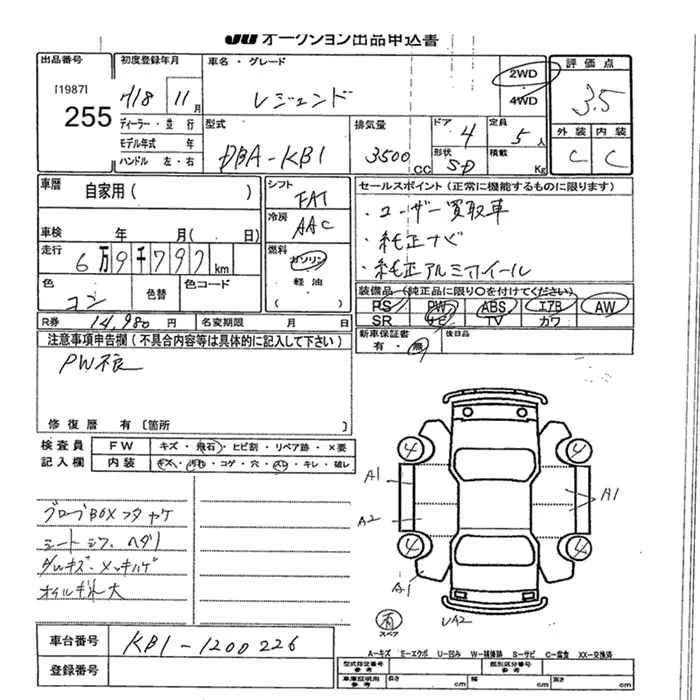 JU オークション出品申込書
出品番号 初度登録年月 車名・グレード 評価点
[1987] 255 H18 11月 レジェンド 2WD・4WD 3.5
ディーラー・並行 型式 排気量 ドア 4 定員 5人 外装 内装
モデル年式 年 DBA-KB1 3500CC 形状 SD 積載 Kg C C
ハンドル 左・右
車暦 自家用( ) シフト FAT セールスポイント(正常に機能するものに限ります)
・ユーザー買取車
車検 年 月( 日) 冷房 AAC ・純正ナビ
走行 6万9千797km 燃料 ガソリン・軽油 ・純正アルミホイール
色 コン 色替 色コード 装備品(純正品に限り○を付けてください)
PS PW ABS エアB AW
R券 14,980円 名変期限 月 日 SR ナビ TV カワ
注意事項申告欄(不具合内容等は具体的に記入して下さい) 新車保証書 有・無 後日品
PW不良
修復暦 有〔箇所 〕
検査員 FW キズ・飛石・ヒビ割・リペア跡・×要
記入欄 内装 キズ・汚れ・コゲ・穴・スレ・キレ・破レ
グローブBOXフタヤケ
シート シワ、ヘタリ
ダレキズ・メッキハゲ
オイル 大
A1 A2 A1 A1 UA2
4 4 4 4
有 スペア
車台番号 KB1-1200226
登録番号
A-キズ E-エクボ U-凹み W-補修跡 S-サビ C-腐食 XX-交換済
型式指定番号 参考 類別区分番号 参考
車庫証明用 参考 長さ cm 幅 cm 高さ cm